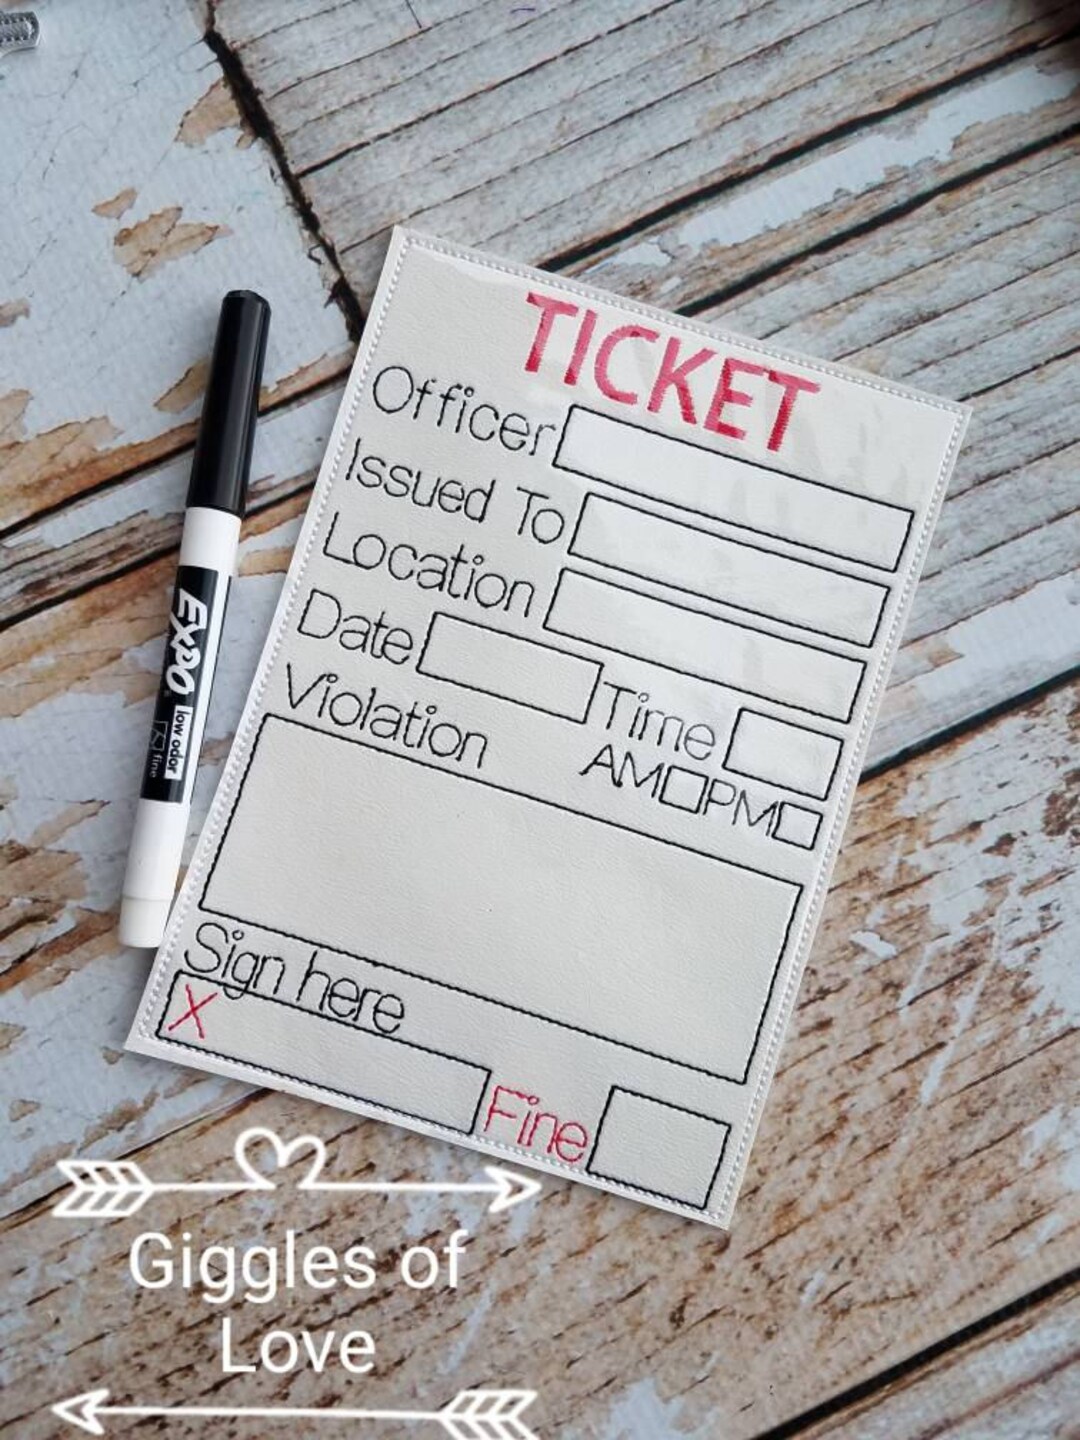 TICKET
Officer
Issued To
Location
Date
Time
AM PM
Violation
Sign here
X
Fine
EXPO
low odor
fine
Giggles of
Love